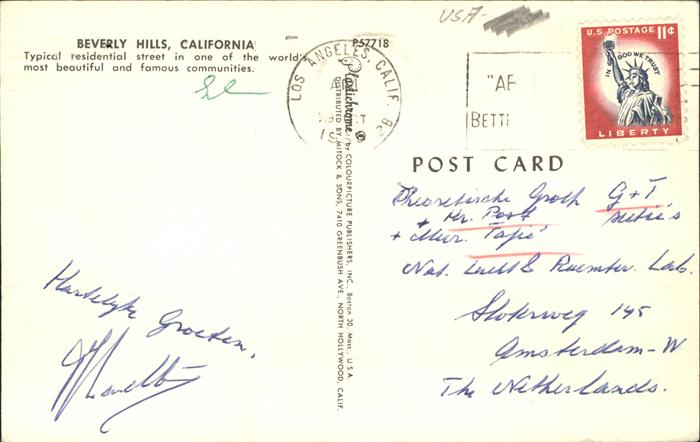 USA-
BEVERLY HILLS, CALIFORNIA
Typical residential street in one of the world's
most beautiful and famous communities.
P57718
LOS ANGELES, CALIF.
OCT
28
"AF
BETT
U.S. POSTAGE 11¢
IN GOD WE TRUST
LIBERTY
Plastichrome ® by COLOURPICTURE PUBLISHERS, INC., Boston 30, Mass., U.S.A.
DISTRIBUTED BY MITOCK & SONS, 7410 GREENBUSH AVE., NORTH HOLLYWOOD, CALIF.
POST CARD
Theoretische Groep G+T
+ Mr. Post
+ Mevr. Tapié
Nat. Lucht & Ruimtev. Lab.
Sloterweg 145
Amsterdam-W
The Netherlands.
Hartelyke Groeten,